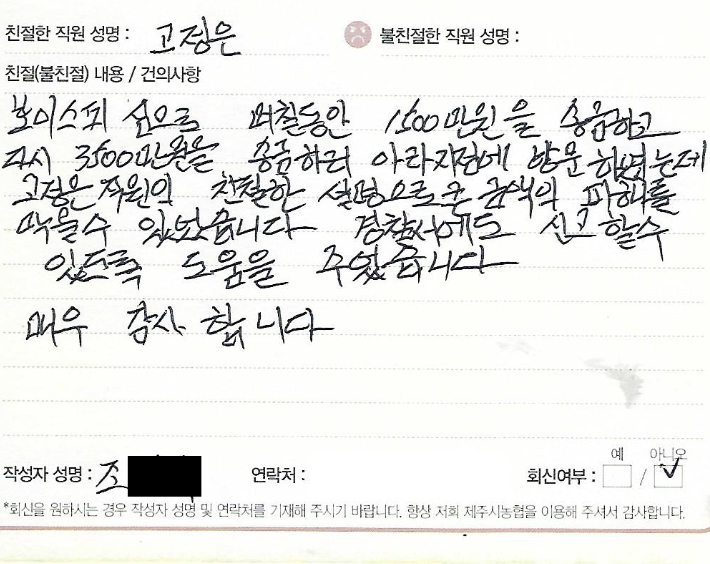 친절한 직원 성명 : 고정은 불친절한 직원 성명 :
친절(불친절) 내용 / 건의사항
보이스피싱으로 며칠동안 1,500만원을 송금하고
다시 3,500만원을 송금하러 아라지점에 방문하였는데
고정은 직원의 친절한 설명으로 큰 금액의 피해를
막을수 있었습니다 경찰서에도 신고할수
있도록 도움을 주었습니다
매우 감사합니다
예 아니오
작성자 성명 : 조 연락처 : 회신여부 : /
*회신을 원하시는 경우 작성자 성명 및 연락처를 기재해 주시기 바랍니다. 항상 저희 제주시농협을 이용해 주셔서 감사합니다.